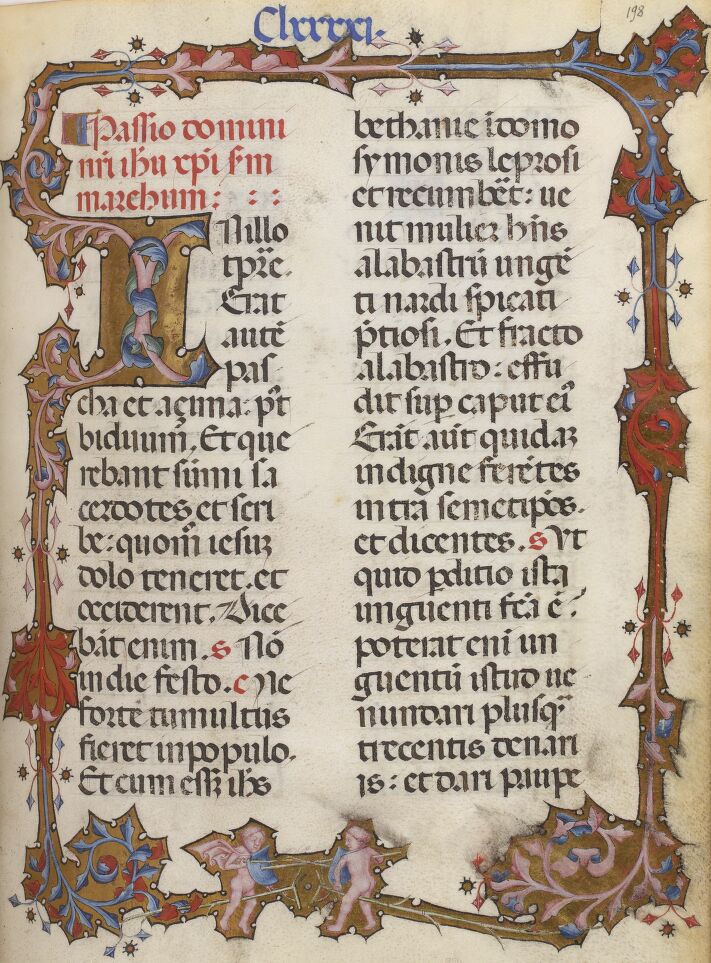 Clxxxxi.
198
Passio domini
nr̄i ih̄u xp̄i sm̄
marchum:
IN illo
tpr̄e.
Erat
autē
pas
cha et açima: pꝰt
biduum̄. Et que
rebant sūmi sa
cerdotes et scri
be: quom̄ iesuꝫ
dolo tenerēt. et
occiderent. Dice
bāt enim. s Nō
in die festo. c Ne
forte tumultus
fieret in populo.
Et cum esset ih̄s
bethanie ī domo
symonis leprosi
et recumbēt: ue
nit mulier hn̄s
alabastrū ungē
ti nardi spicati
p̄tiosi. Et fracto
alabastro: effu
dit sup̄ caput eiꝰ
Erāt aūt quidaꝫ
indigne ferētes
intrā semetip̄os.
et dicentes. s Vt
quid p̄ditio ista
unguenti fc̄a ē?
poterat eni un
guentū istud ue
nundari plusqꝫ
trecentis denari
is: et dari paupe